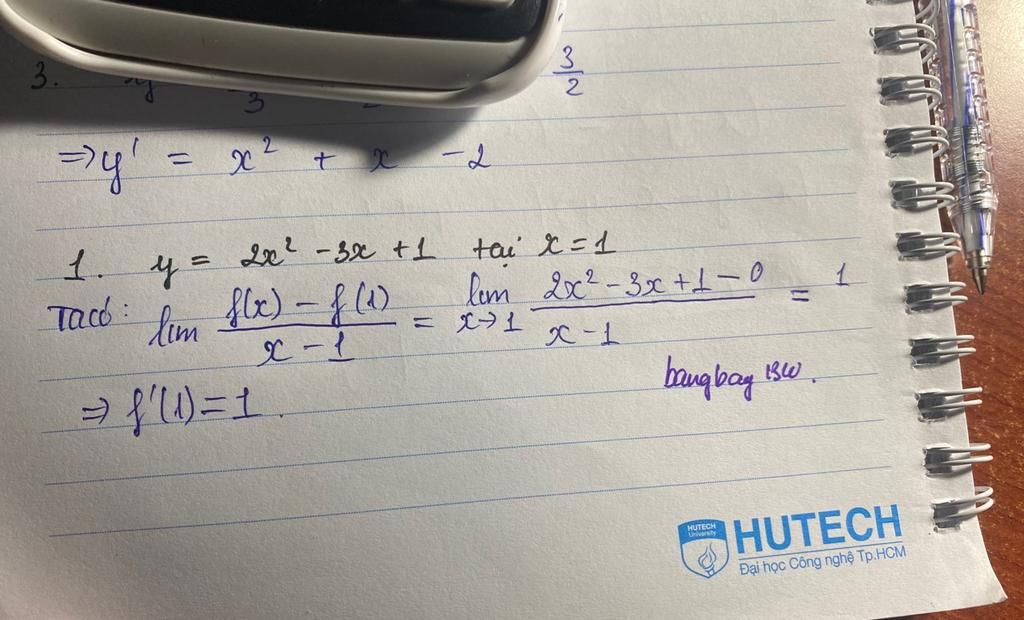 3. y 3 3/2
=> y' = x² + x - 2
1. y = 2x² - 3x + 1 tại x = 1
Ta có: lim (f(x) - f(1))/(x - 1) = lim x→1 (2x² - 3x + 1 - 0)/(x - 1) = 1
=> f'(1) = 1.
bangbay BW.
HUTECH University
HUTECH
Đại học Công nghệ Tp.HCM